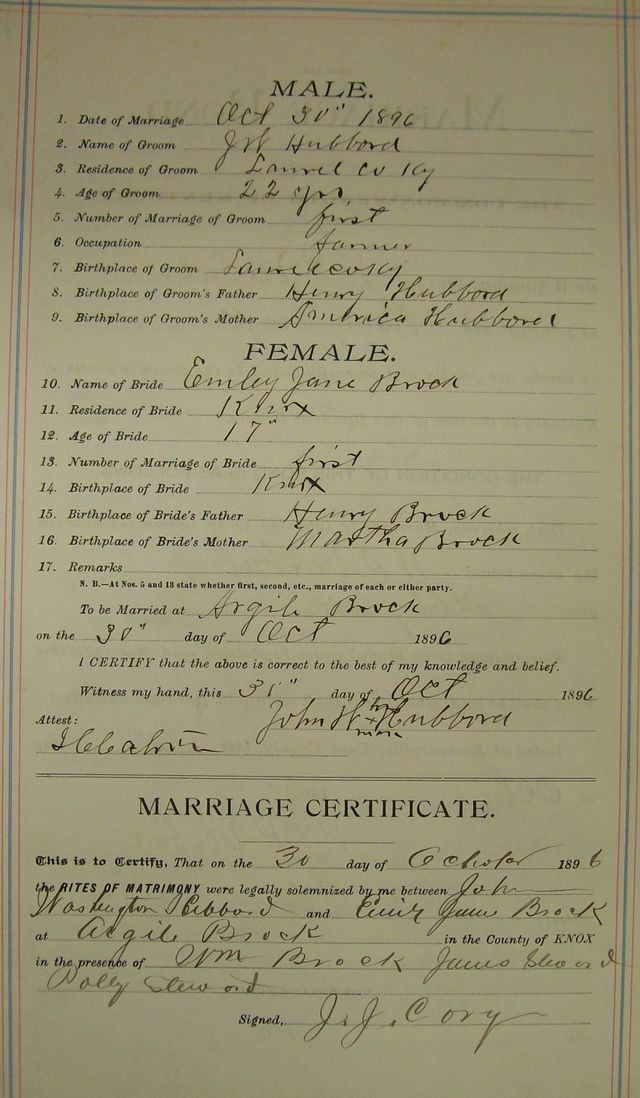 MALE.
1. Date of Marriage Oct 30" 1896
2. Name of Groom J W Hubbord
3. Residence of Groom Laurel co Ky
4. Age of Groom 22 yrs
5. Number of Marriage of Groom first
6. Occupation farmer
7. Birthplace of Groom Laurel co Ky
8. Birthplace of Groom's Father Henry Hubbord
9. Birthplace of Groom's Mother America Hubbord
FEMALE.
10. Name of Bride Emley Jane Brock
11. Residence of Bride Knox
12. Age of Bride 17"
13. Number of Marriage of Bride first
14. Birthplace of Bride Knox
15. Birthplace of Bride's Father Henry Brock
16. Birthplace of Bride's Mother Martha Brock
17. Remarks
N. B.—At Nos. 5 and 13 state whether first, second, etc., marriage of each or either party.
To be Married at Argile Brock
on the 30" day of Oct 1896
I CERTIFY that the above is correct to the best of my knowledge and belief.
Witness my hand, this 30" day of Oct 1896
Attest: John W his x mark Hubbord
MARRIAGE CERTIFICATE.
This is to Certify, That on the 30 day of October 1896
the RITES OF MATRIMONY were legally solemnized by me between John
Washington Hibbord and Jane Brock
at Argile Brock in the County of KNOX
in the presence of Wm Brock James
Polly
Signed, J. J. Cory